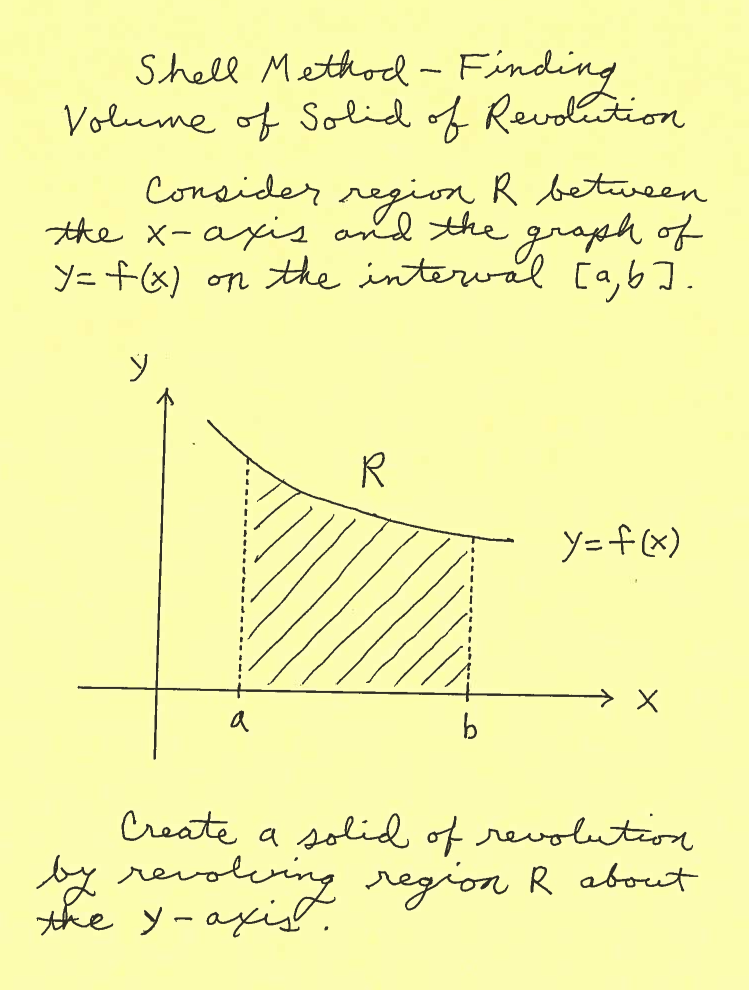 Shell Method – Finding
Volume of Solid of Revolution
Consider region R between
the x-axis and the graph of
y = f(x) on the interval [a,b].
y
R
y = f(x)
x
a
b
Create a solid of revolution
by revolving region R about
the y-axis.